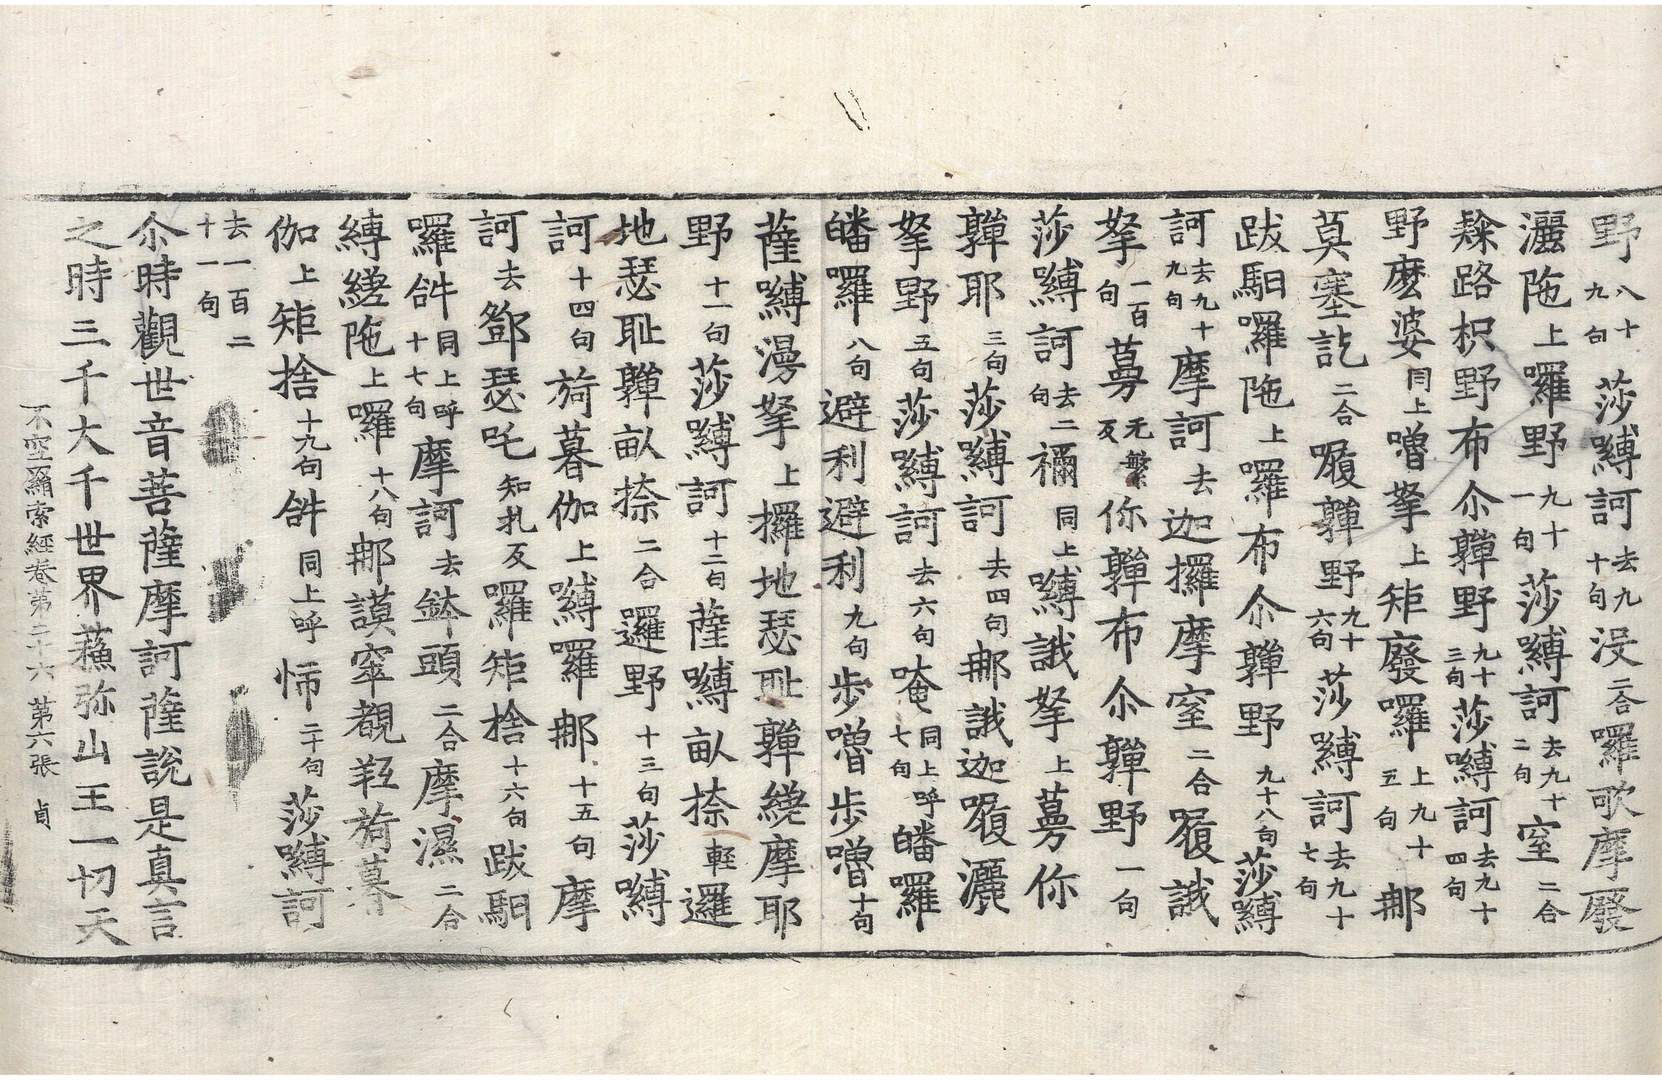 野八十九句莎嚩訶去九十句没二合囉歌摩廢
灑陁上囉野九十一句莎嚩訶去九十二句窒二合
路枳野布尒亸野九十三句莎嚩訶去九十四句
野麽婆同上嚕拏上矩廢囉上九十五句那
莫塞訖二合𡃤亸野九十六句莎嚩訶去九十七句
跋馹囉陁上囉布尒亸野九十八句莎嚩
訶去九十九句摩訶去迦攞摩窒二合𡃤誐
拏一百句蕚无繁反你亸布尒亸野一句
莎嚩訶去二句禰同上嚩誐拏上蕚你
亸耶三句莎嚩訶去四句那誐迦𡃤灑
拏野五句莎嚩訶去六句唵同上呼七句皤囉
皤囉八句避利避利九句步嚕步嚕十句
薩嚩漫拏上攞地瑟耻亸繞摩耶
野十一句莎嚩訶十二句薩嚩畝捺輕邏
地瑟耻亸畝捺二合邏野十三句莎嚩
訶十四句旖暮伽上嚩囉那十五句摩
訶去鄧瑟吒知扎反囉矩捨十六句跋馹
囉𤙖同上呼十七句摩訶去鉢頭二合摩濕二合
縛繞陁上囉十八句那謨窣覩羝旖暮
伽上矩捨十九句𤙖同上呼怖二十句莎嚩訶
去一百二十一句
尒時觀世音菩薩摩訶薩說是真言
之時三千大千世界蘓弥山王一切天
不空羂索經卷第二十六 第六張 貞